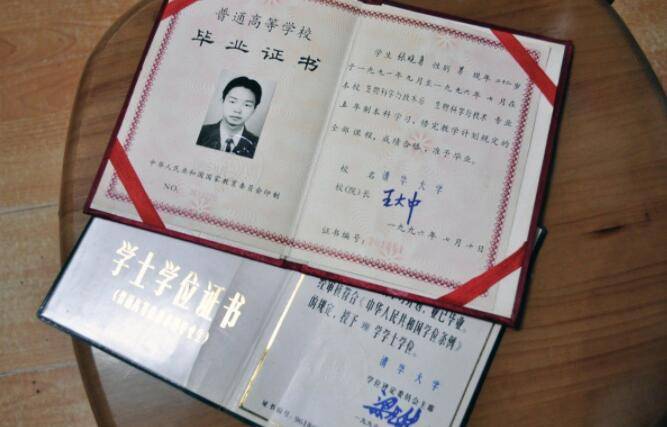 普通高等学校
毕业证书
中华人民共和国国家教育委员会印制
NO.
学生 张晓勇 性别 男 现年 岁
于一九九一年九月至一九九六年七月在
本校 生物科学与技术系 生物科学与技术 专业
五年制本科学习,修完教学计划规定的
全部课程,成绩合格,准予毕业。
校名 清华大学
校(院)长 王大中
证书编号:
一九九六年七月十日
学士学位证书
经审核符合《中华人民共和国学位条例》
的规定,授予 理 学学士学位。
清华大学
学位评定委员会主席
证书编号:
一九九